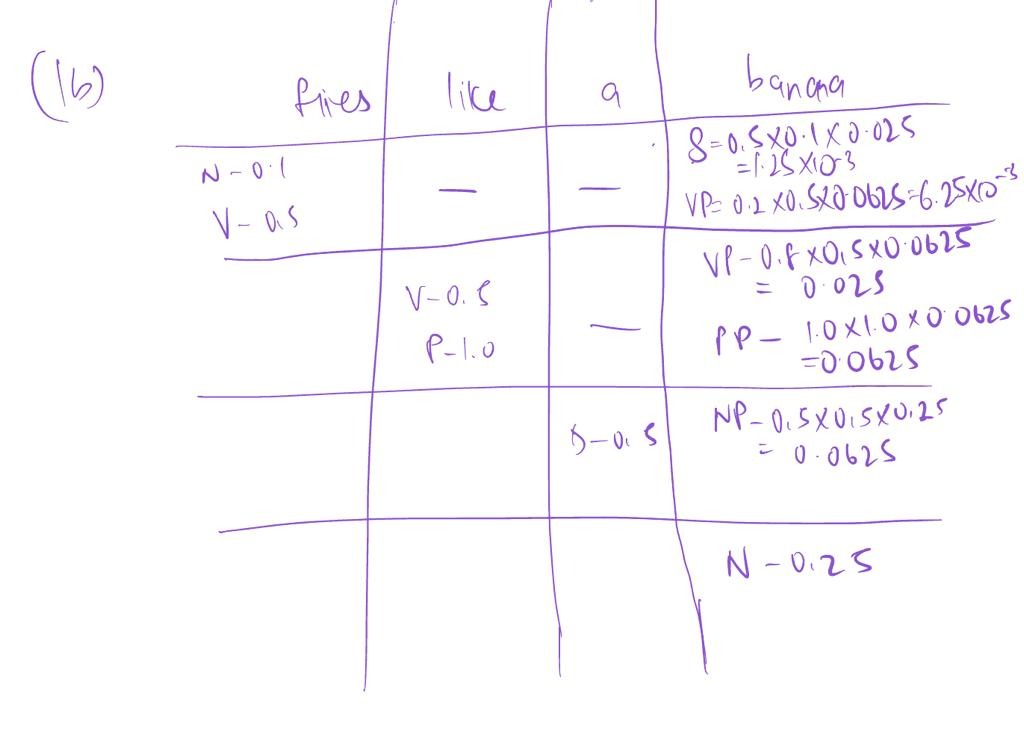 (1b)
fires like a banana
N - 0.1
V - 0.5
—
—
S = 0.5 X 0.1 X 0.025
= 1.25 X 10-3
VP = 0.2 X 0.5 X 0.0625 = 6.25 X 10-3
V - 0.5
P - 1.0
—
VP - 0.8 X 0.5 X 0.0625
= 0.025
PP - 1.0 X 1.0 X 0.0625
= 0.0625
D - 0.5
NP - 0.5 X 0.5 X 0.25
= 0.0625
N - 0.25